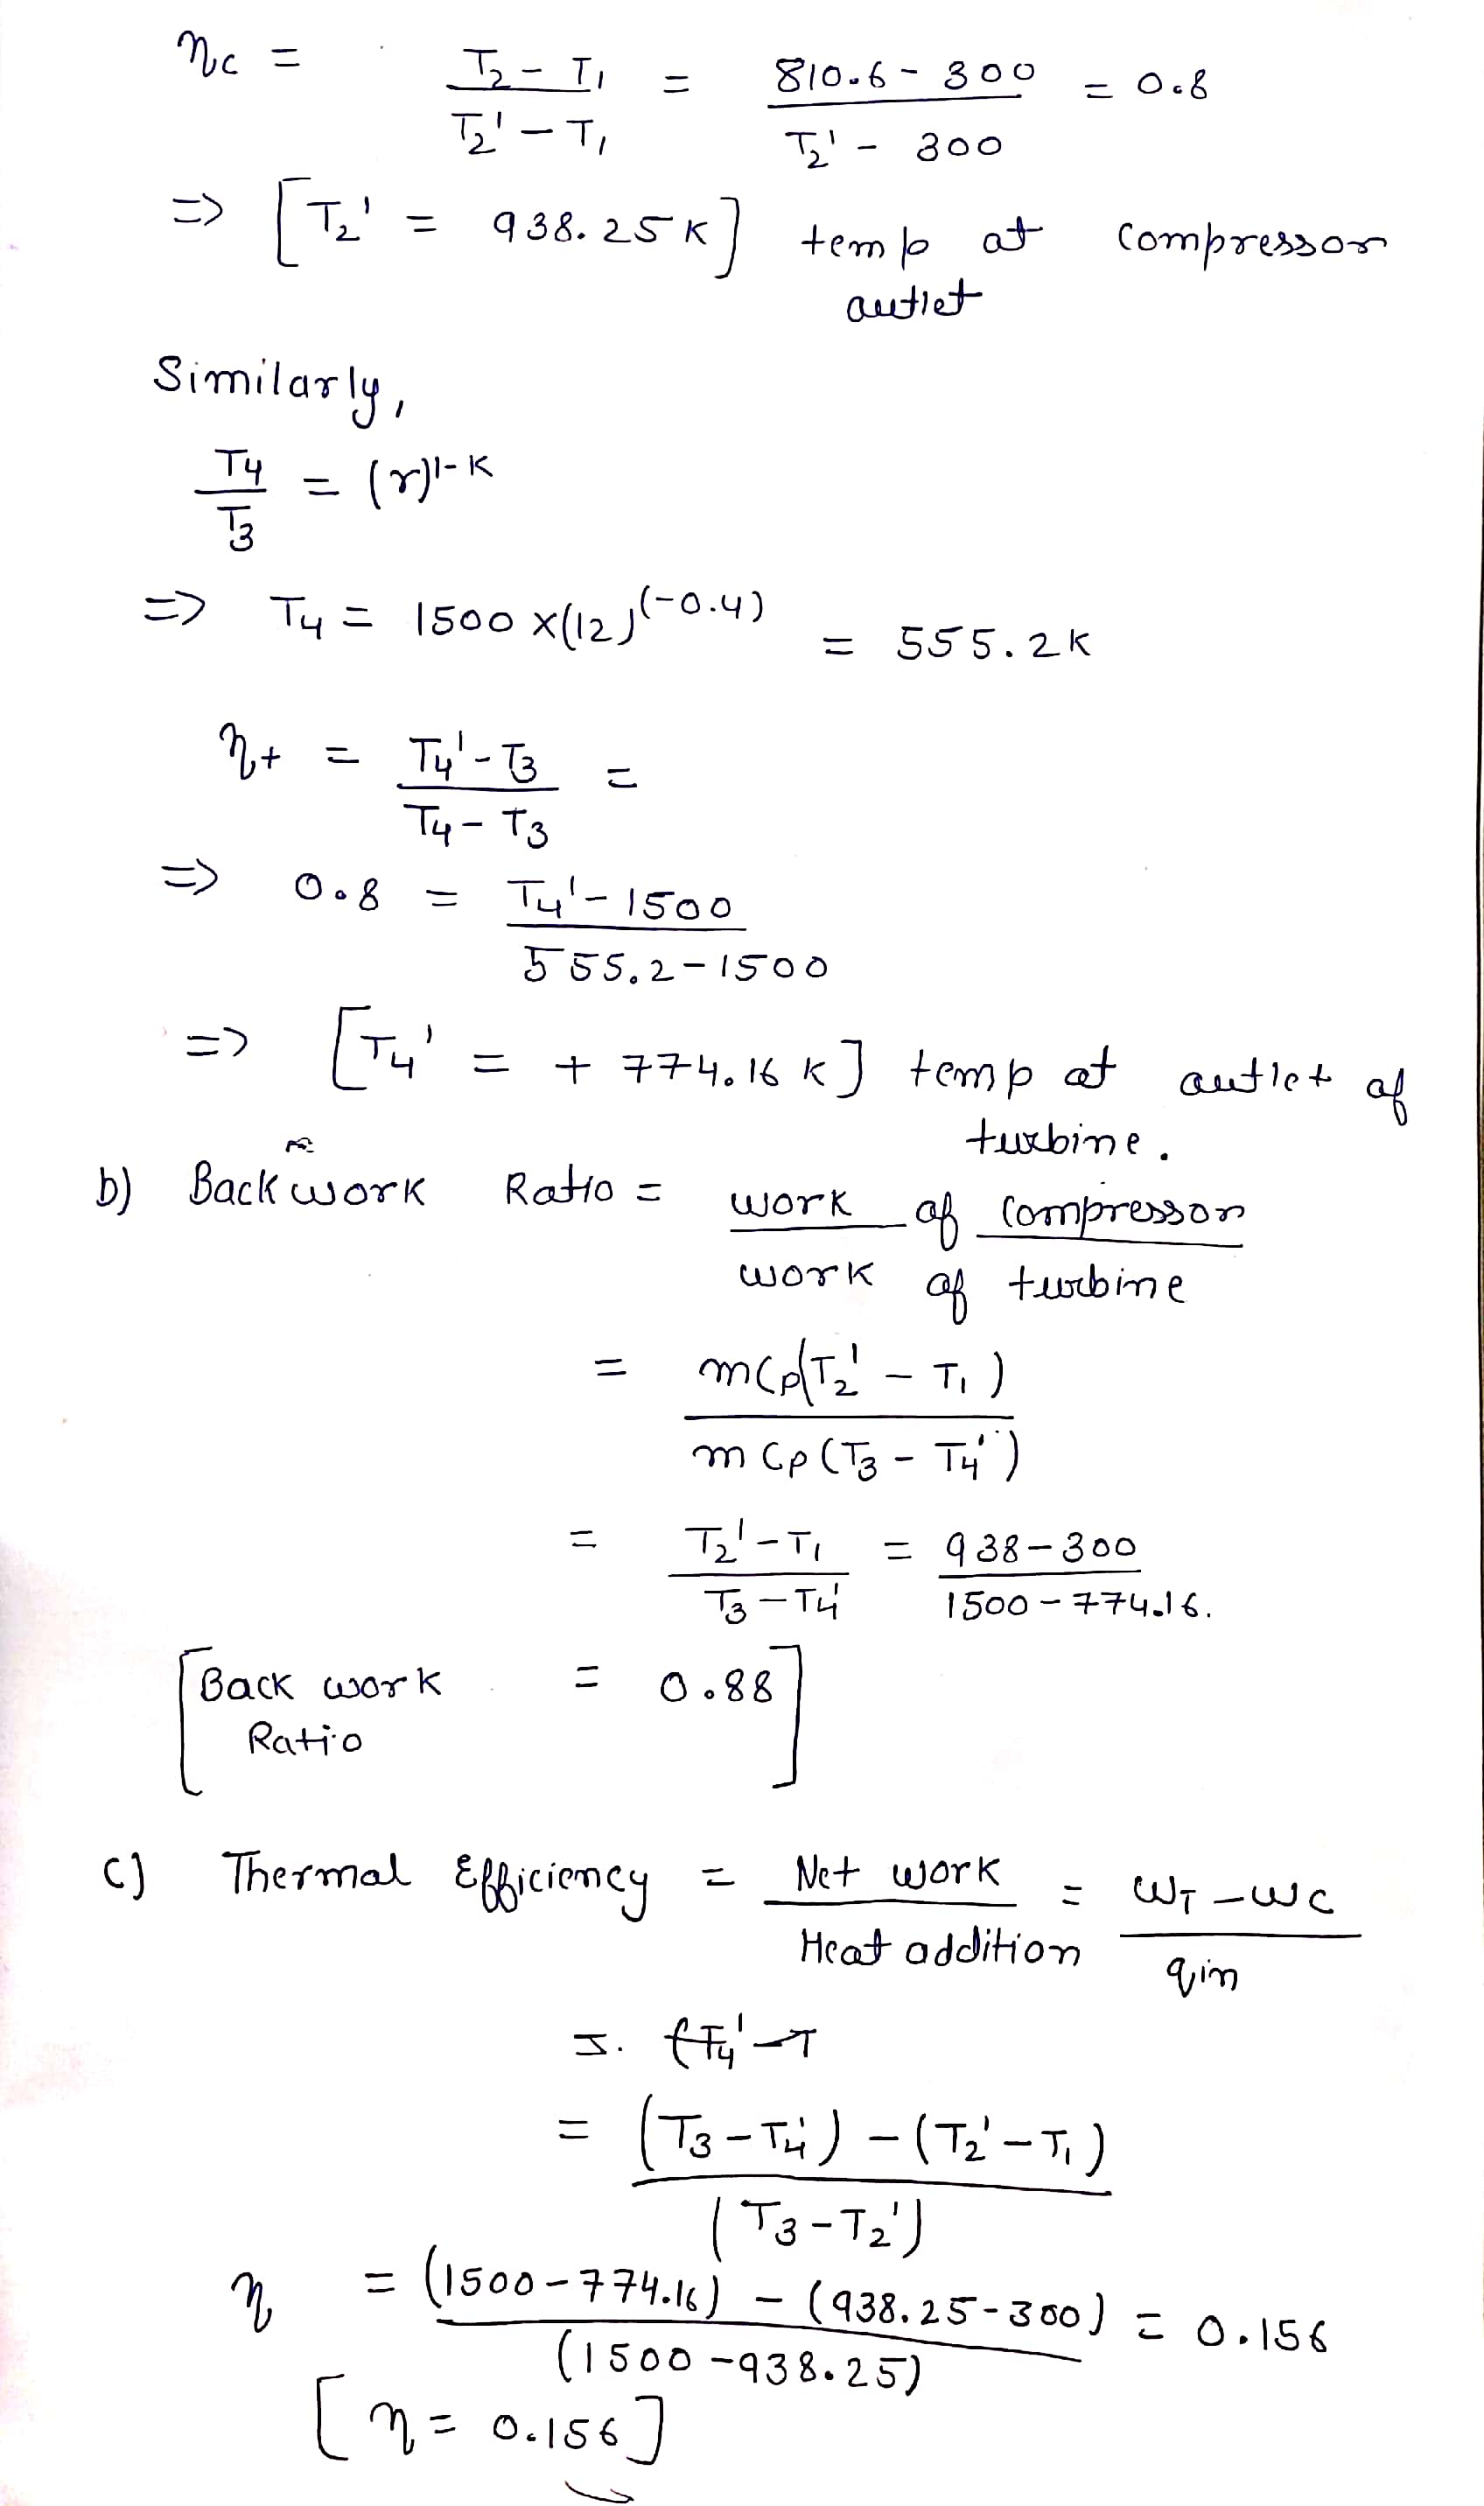 ηc = T2 - T1 / T2' - T1 = 810.6 - 300 / T2' - 300 = 0.8
=> [T2' = 938.25K] temp at compressor
outlet
Similarly,
T4 / T3 = (r)^1-K
=> T4 = 1500 x(12)^(-0.4) = 555.2K
ηt = T4' - T3 / T4 - T3 =
=> 0.8 = T4' - 1500 / 555.2 - 1500
=> [T4' = + 774.16 K] temp at outlet of
turbine.
b) Back work Ratio = work of compressor / work of turbine
= mCp(T2' - T1) / mCp(T3 - T4')
= T2' - T1 / T3 - T4' = 938 - 300 / 1500 - 774.16.
[Back work Ratio = 0.88]
c) Thermal Efficiency = Net work / Heat addition = WT - WC / qin
= (T3 - T4') - (T2' - T1) / (T3 - T2')
η = (1500 - 774.16) - (938.25 - 300) / (1500 - 938.25) = 0.156
[η = 0.156]